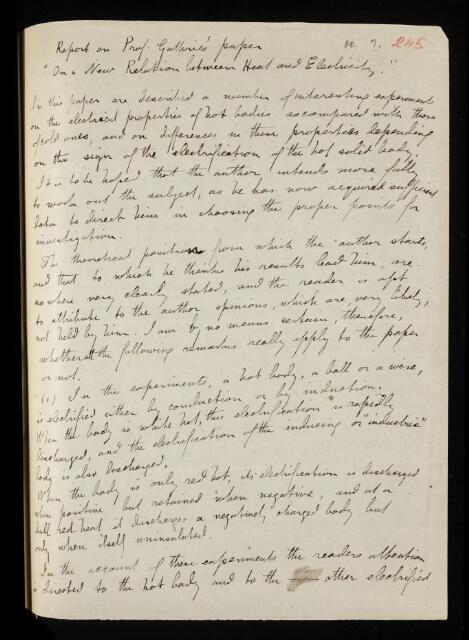 Report on Prof. Guthrie's paper
245
"On a New Relation between Heat and Electricity."
In this paper are described a number of interesting experiments
on the electrical properties of hot bodies as compared with those
of cold ones, and on differences in these properties depending
on the sign of the electrification of the hot solid body.
It is to be hoped that the author intends more fully
to work out the subject, as he has now acquired sufficient
data to direct him in choosing the proper points for
investigation.
The theoretical position from which the author starts,
and that to which he thinks his results lead him, are
nowhere very clearly stated, and the reader is apt
to attribute to the author opinions, which are, very likely,
not held by him. I am by no means certain, therefore,
whether all the following remarks really apply to the paper
or not.
(1.) In the experiments, a hot body, a ball or a wire,
is electrified either by conduction or by induction.
When the body is white hot, this electrification is rapidly
discharged, and the electrification of the inducing or "inductric"
body is also discharged.
When the body is only red hot, its electrification is discharged
when positive but retained when negative, and at a
dull red heat it discharges a negatively charged body but
only when itself uninsulated.
In the account of these experiments the readers attention
is directed to the hot body and to the other electrified